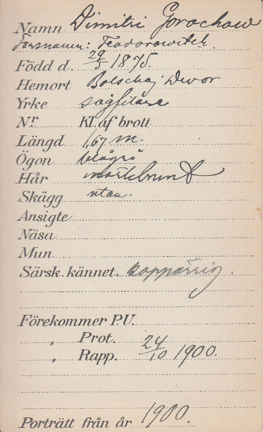 Namn Dimitri Gorochow
Försnamn: Feodorowitch.
Född d. 29/5 1875.
Hemort Bolschoj-Dwor
Yrke sågfilare
Nr Kl. af brott
Längd 1,67 m.
Ögon blågrå
Hår mörkbrunt
Skägg utan.
Ansigte
Näsa
Mun
Särsk. kännet. kopparrig.
Förekommer P.U.
„ Prot.
„ Rapp. 24/10 1900.
Porträtt från år 1900.